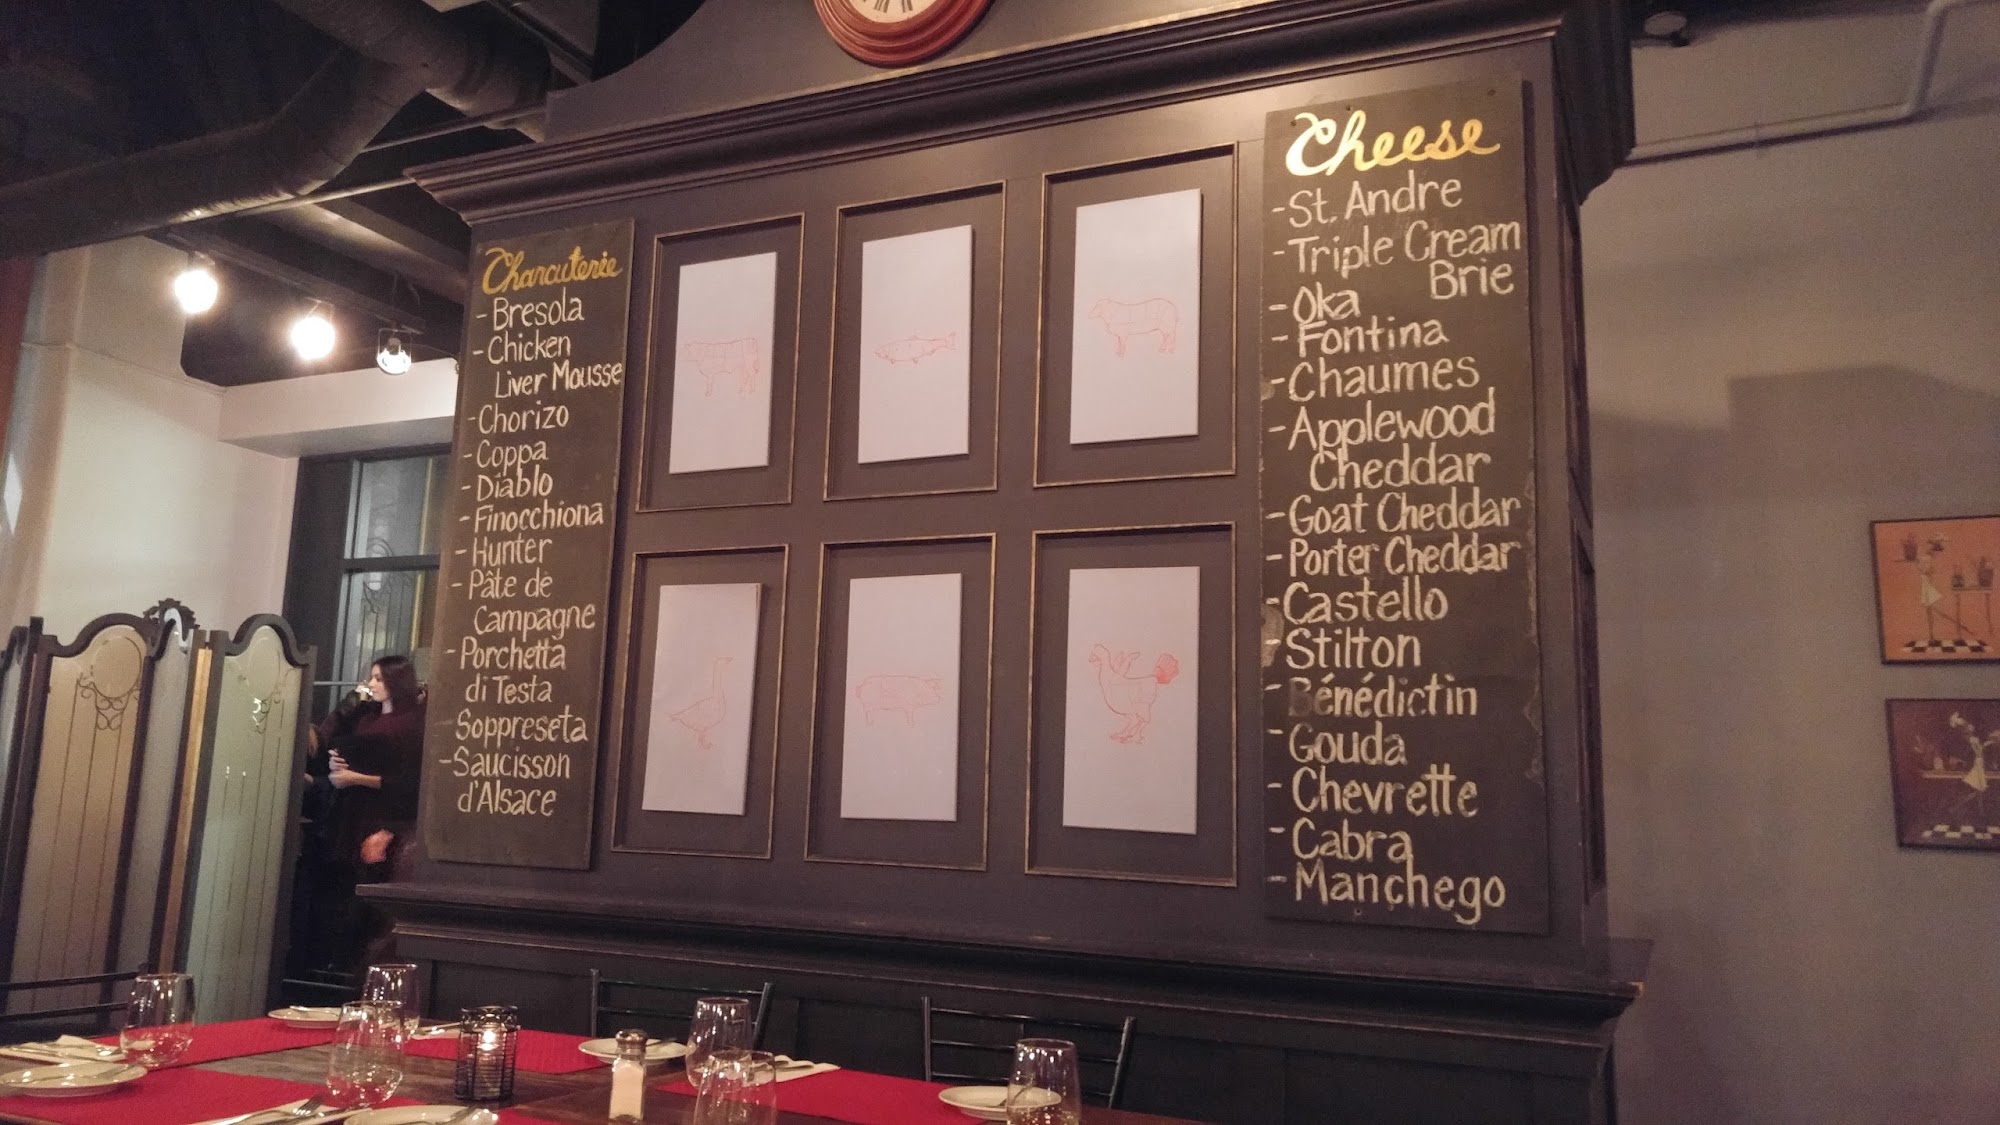 Charcuterie
- Bresola
- Chicken
Liver Mousse
- Chorizo
- Coppa
- Diablo
- Finocchiona
- Hunter
- Pâte de
Campagne
- Porchetta
di Testa
Soppreseta
- Saucisson
d'Alsace
Cheese
- St. Andre
- Triple Cream
Brie
- Oka
- Fontina
- Chaumes
- Applewood
Cheddar
- Goat Cheddar
- Porter Cheddar
- Castello
- Stilton
- Bénédictin
- Gouda
- Chevrette
- Cabra
- Manchego